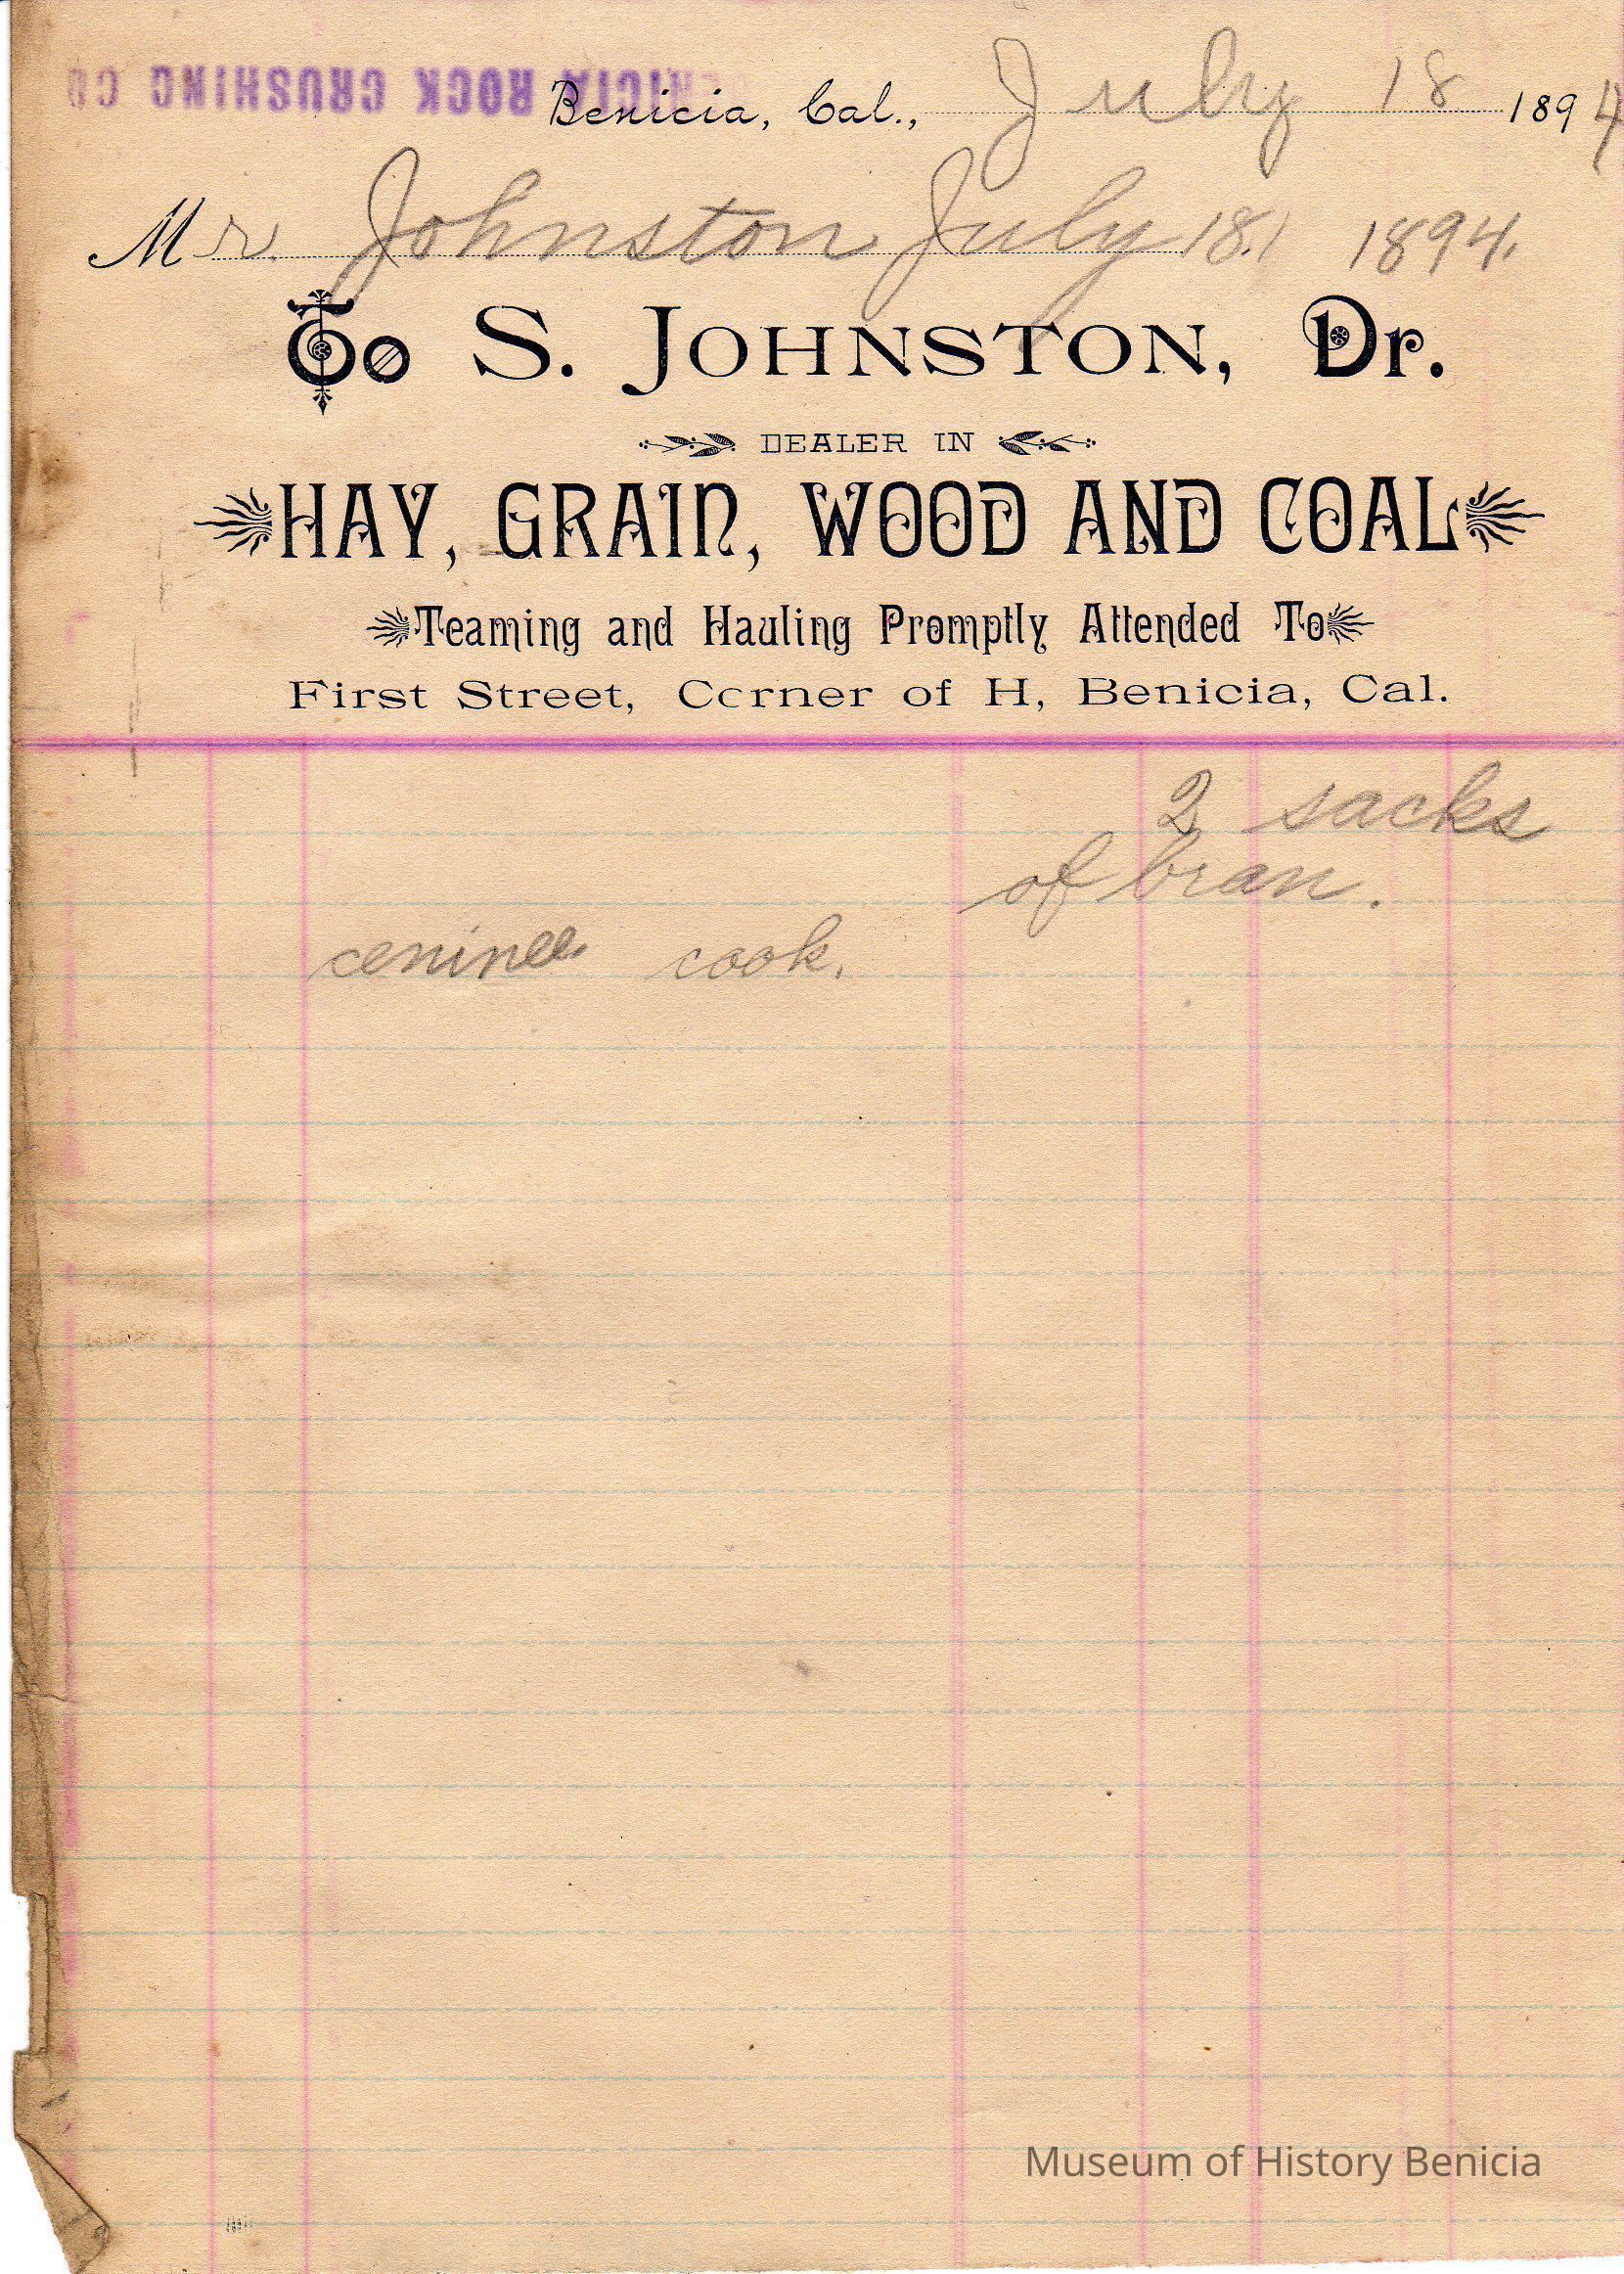 BENICIA ROCK CRUSHING CO
Benicia, Cal., July 18 1894
Mr. Johnston July 18. 1894.
To S. JOHNSTON, Dr.
DEALER IN
HAY, GRAIN, WOOD AND COAL
Teaming and Hauling Promptly Attended To
First Street, Corner of H, Benicia, Cal.
2 sacks
of bran.
cook.
Museum of History Benicia